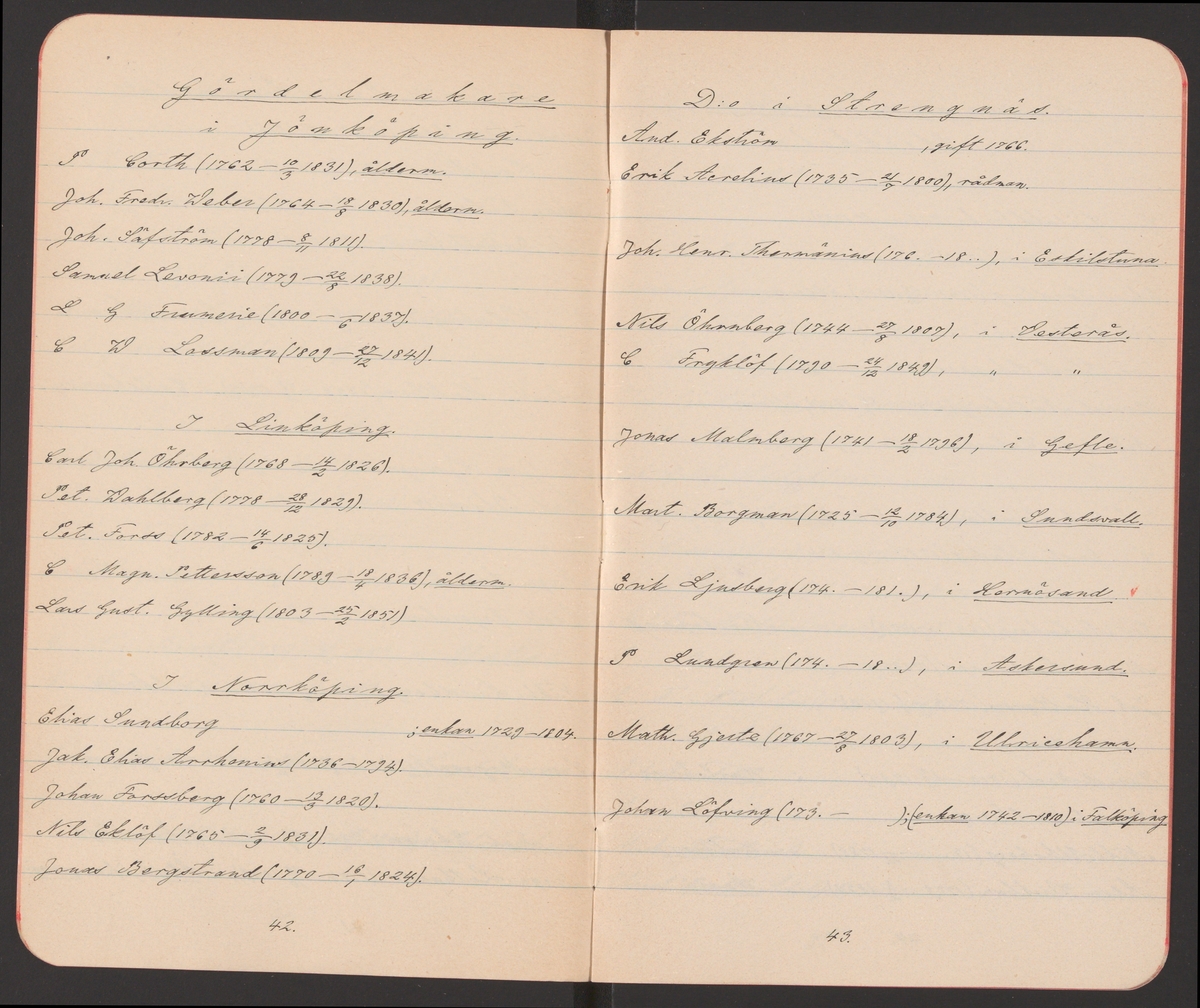 Gördelmakare
i Jönköping.
P Corth (1762 – 10/3 1831), ålderm.
Joh. Fredr. Weber (1764 – 18/8 1830), ålderm.
Joh. Säfström (1778 – 8/11 1811).
Samuel Levonii (1779 – 22/8 1838).
L G Frumerie (1800 – /6 1837).
C W Lossman (1809 – 27/12 1841).
I Linköping.
Carl Joh. Öhrberg (1768 – 14/2 1826).
Pet. Wahlberg (1778 – 28/12 1829).
Pet. Forss (1782 – 14/6 1825).
C Magn. Pettersson (1789 – 18/4 1836), ålderm.
Lars Gust. Gylling (1803 – 25/2 1851)
I Norrköping.
Elias Sundborg ; enkan 1729–1804.
Jak. Elias Arrhenius (1736–1794).
Johan Forssberg (1760 – 13/3 1820).
Nils Eklöf (1765 – 2/9 1831).
Jonas Bergstrand (1770 – 16/1 1824).
42.
D:o i Strengnäs.
And. Ekström , gift 1766.
Erik Acrelius (1735 – 21/7 1800), rådman.
Joh. Henr. Thermänius (176. – 18..), i Eskilstuna.
Nils Öhrnberg (1744 – 27/8 1807), i Vesterås.
C Fryklöf (1790 – 24/12 1849), " "
Jonas Malmberg (1741 – 18/2 1796), i Gefle.
Mart. Borgman (1725 – 12/10 1784), i Sundsvall.
Erik Ljusberg (174. – 181.), i Hernösand
P Lundgren (174. – 18..), i Askersund.
Math. Gjertz (1767 – 27/8 1803), i Ulricehamn.
Johan Löfving (173. – ); (enkan 1742–1810) i Falköping
43.